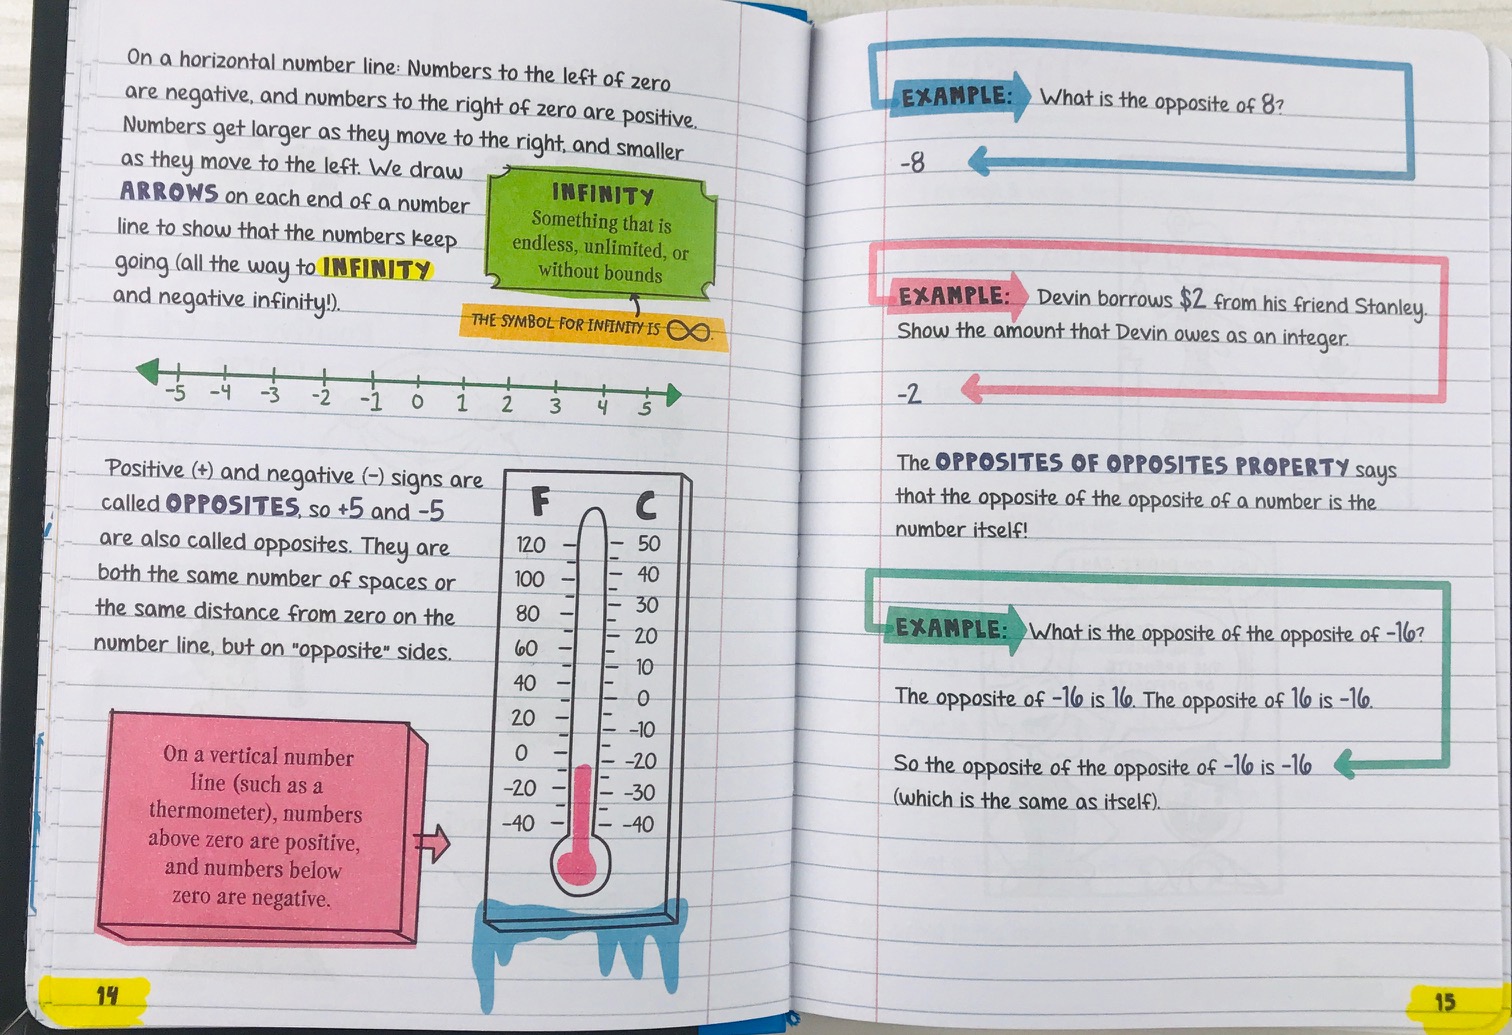 On a horizontal number line: Numbers to the left of zero
are negative, and numbers to the right of zero are positive.
Numbers get larger as they move to the right, and smaller
as they move to the left. We draw
ARROWS on each end of a number
line to show that the numbers keep
going (all the way to INFINITY
and negative infinity!).
INFINITY
Something that is
endless, unlimited, or
without bounds
THE SYMBOL FOR INFINITY IS ∞.
-5 -4 -3 -2 -1 0 1 2 3 4 5
Positive (+) and negative (-) signs are
called OPPOSITES, so +5 and -5
are also called opposites. They are
both the same number of spaces or
the same distance from zero on the
number line, but on "opposite" sides.
On a vertical number
line (such as a
thermometer), numbers
above zero are positive,
and numbers below
zero are negative.
F C
120 50
100 40
80 30
60 20
40 10
20 0
0 -10
-20 -20
-40 -30
-40
14
EXAMPLE: What is the opposite of 8?
-8
EXAMPLE: Devin borrows $2 from his friend Stanley.
Show the amount that Devin owes as an integer.
-2
The OPPOSITES OF OPPOSITES PROPERTY says
that the opposite of the opposite of a number is the
number itself!
EXAMPLE: What is the opposite of the opposite of -16?
The opposite of -16 is 16. The opposite of 16 is -16.
So the opposite of the opposite of -16 is -16
(which is the same as itself).
15